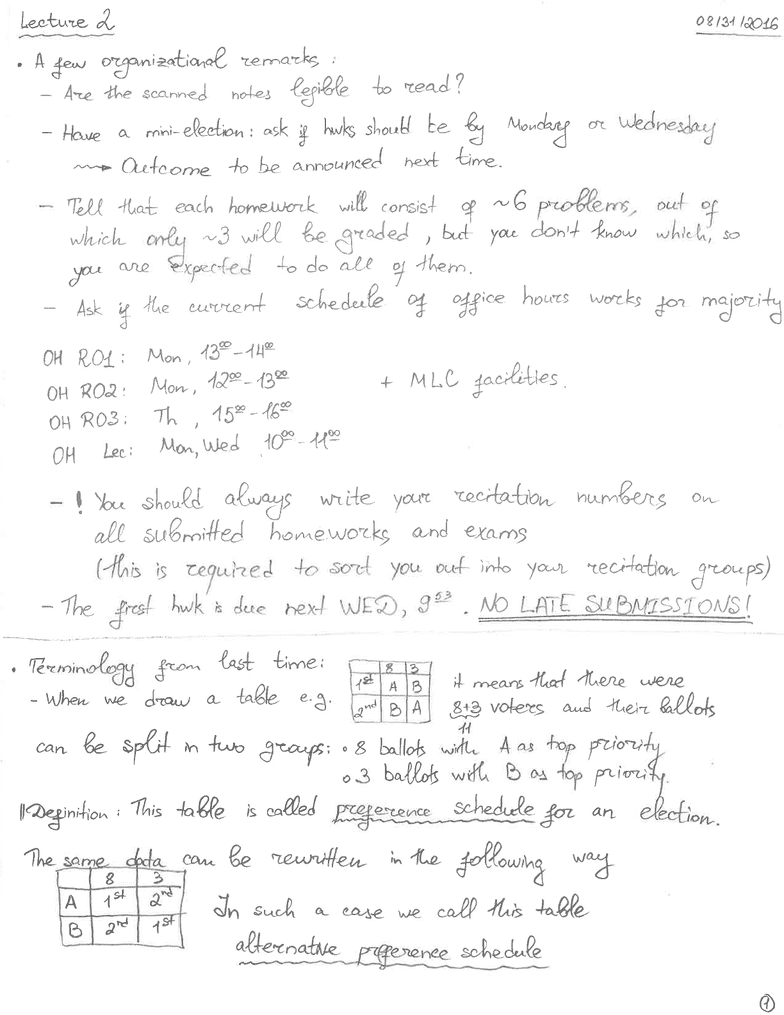 Lecture 2 08/31/2016
• A few organizational remarks :
– Are the scanned notes legible to read?
– Have a mini-election: ask if hwks should be by Monday or Wednesday
⟿ Outcome to be announced next time.
– Tell that each homework will consist of ~6 problems, out of
which only ~3 will be graded, but you don't know which, so
you are expected to do all of them.
– Ask if the current schedule of office hours works for majority
OH R01: Mon, 13⁰⁰–14⁰⁰
OH R02: Mon, 12⁰⁰–13⁰⁰ + MLC facilities.
OH R03: Th, 15⁰⁰–16⁰⁰
OH Lec: Mon, Wed 10⁰⁰–11⁰⁰
– ! You should always write your recitation numbers on
all submitted homeworks and exams
(this is required to sort you out into your recitation groups)
– The first hwk is due next WED, 9⁵³. NO LATE SUBMISSIONS!
• Terminology from last time:
8 3
1st A B it means that there were
– When we draw a table e.g. 2nd B A 8+3 voters and their ballots
11
can be split in two groups: ∘ 8 ballots with A as top priority
∘ 3 ballots with B as top priority.
Definition: This table is called preference schedule for an election.
The same data can be rewritten in the following way
8 3
A 1st 2nd In such a case we call this table
B 2nd 1st
alternative preference schedule
1